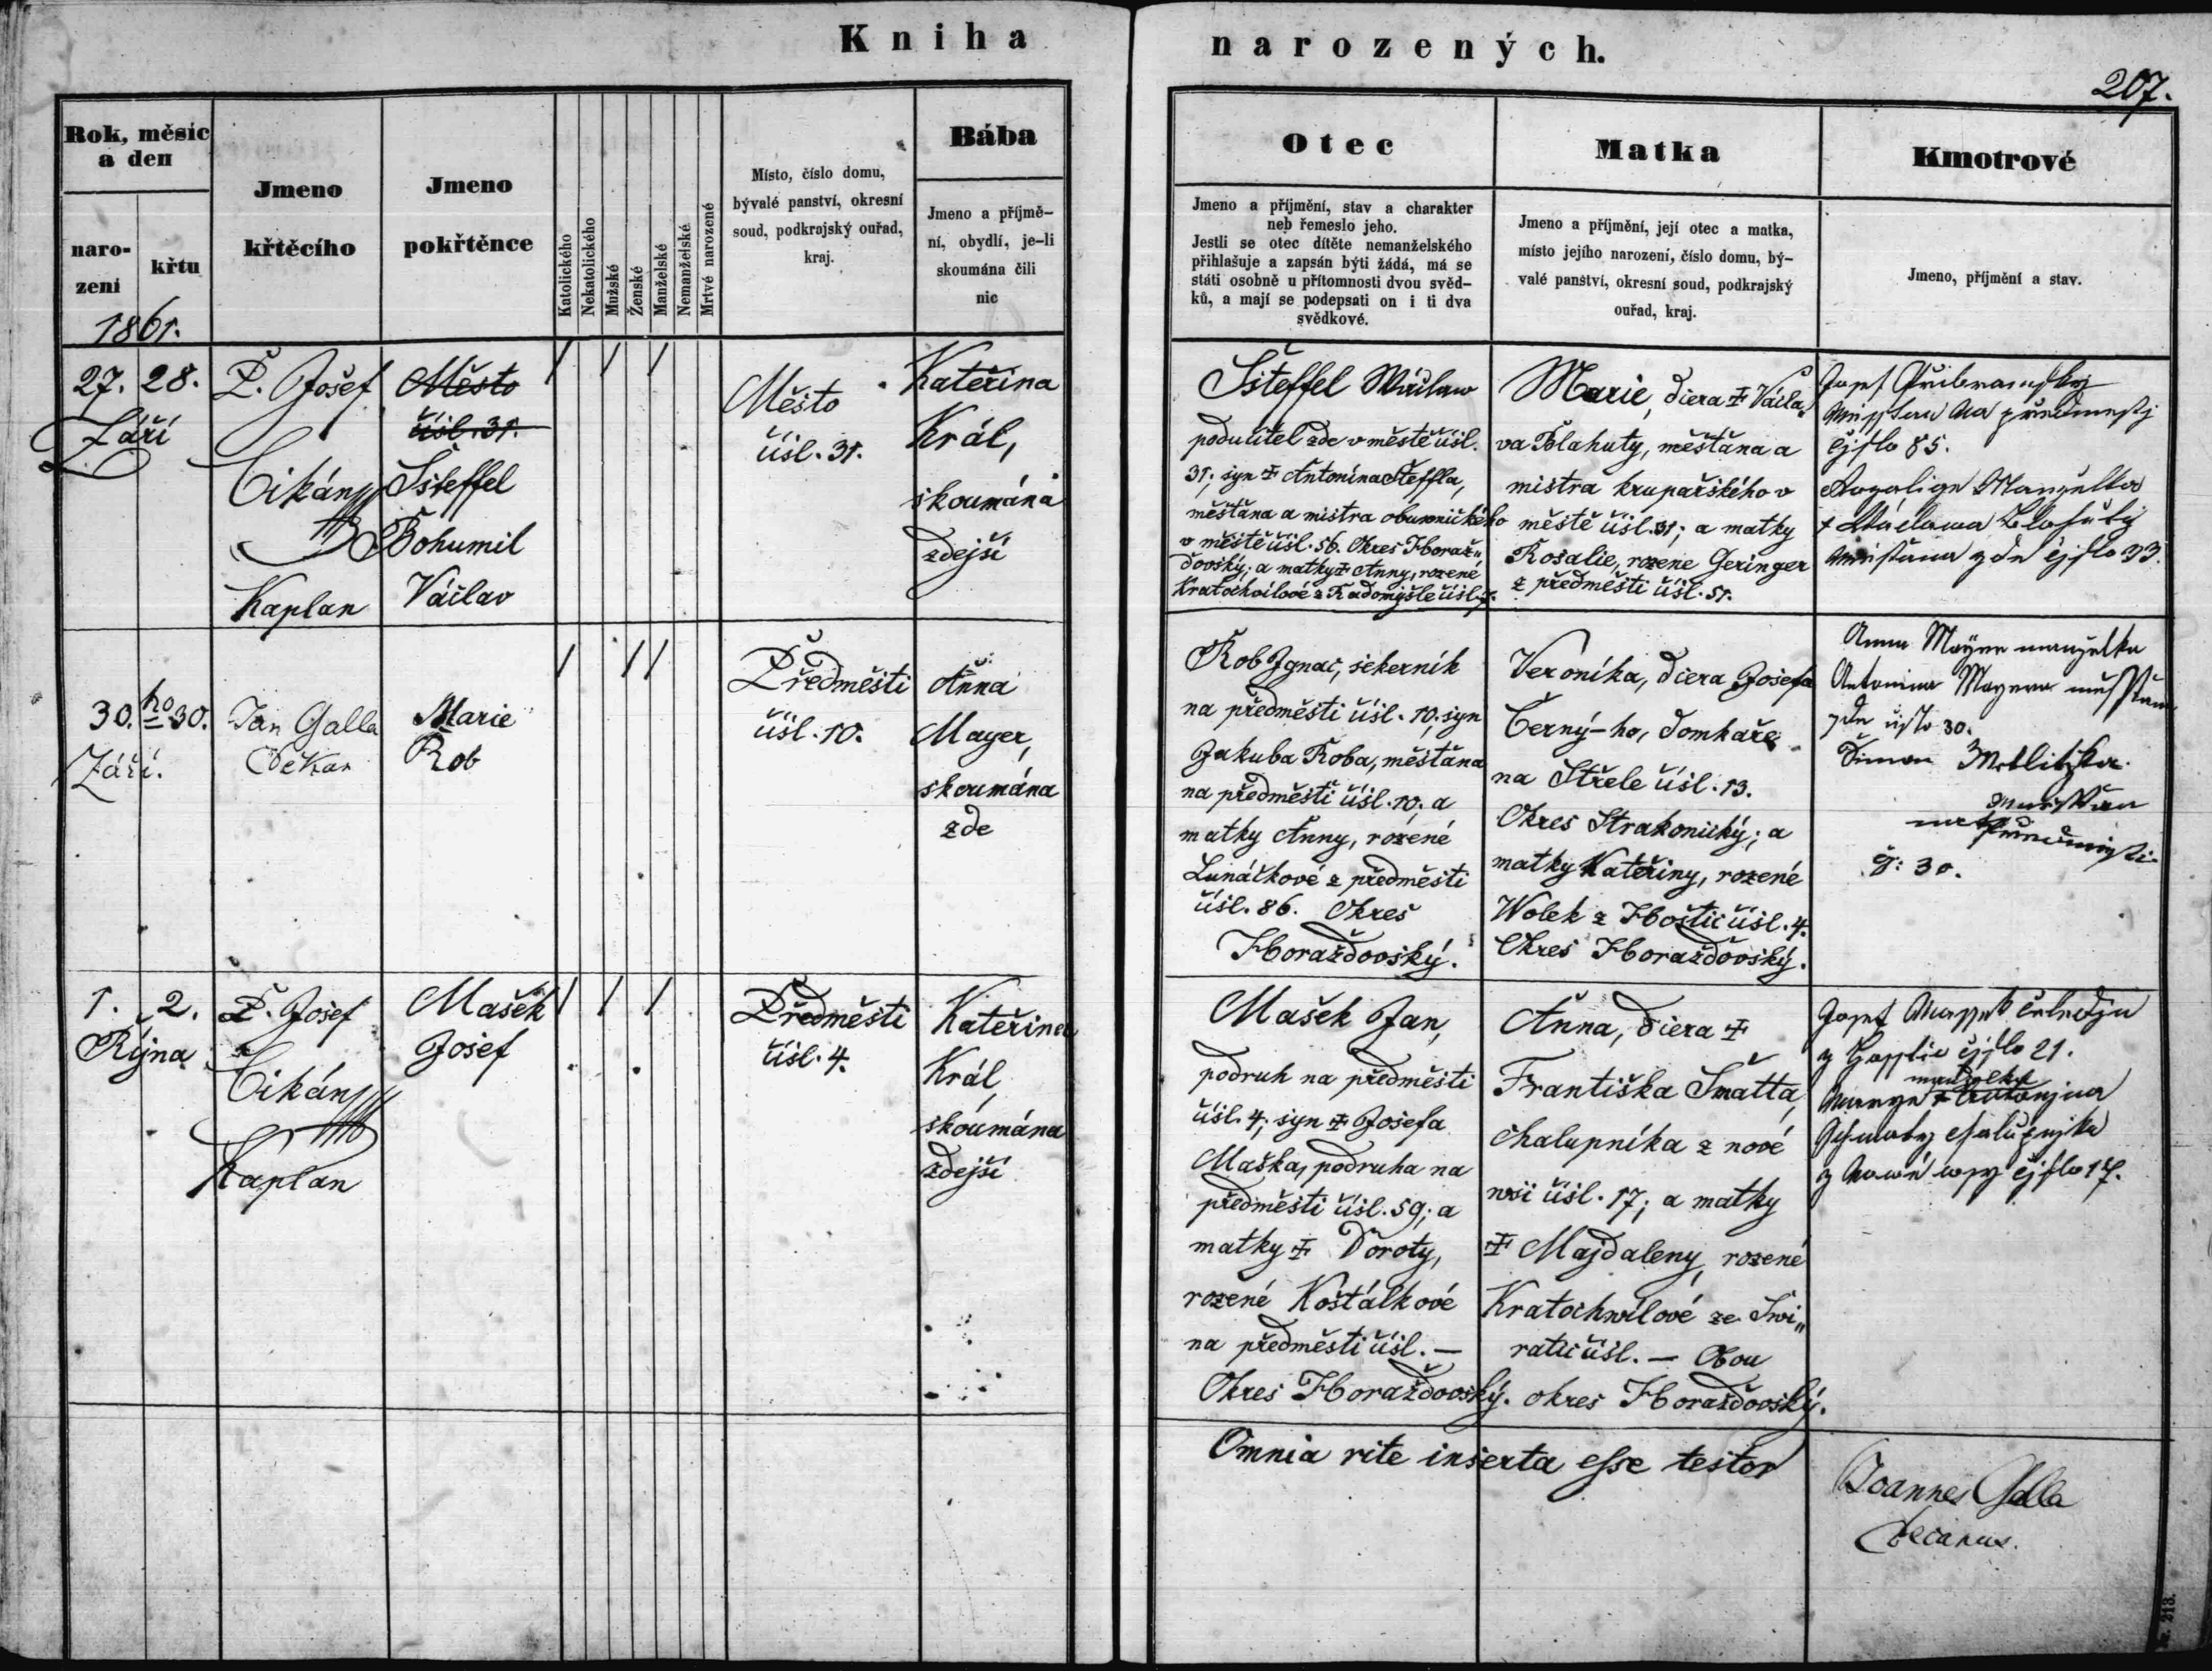 Kniha narozených.
207.
Rok, měsíc
a den
naro-
zení
křtu
1861.
Jmeno
křtěcího
Jmeno
pokřtěnce
Katolického
Nekatolického
Mužské
Ženské
Manželské
Nemanželské
Mrtvé narozené
Místo, číslo domu,
bývalé panství, okresní
soud, podkrajský ouřad,
kraj.
Bába
Jmeno a příjmě-
ní, obydlí, je-li
skoumána čili
nic
Otec
Jmeno a příjmění, stav a charakter
neb řemeslo jeho.
Jestli se otec dítěte nemanželského
přihlašuje a zapsán býti žádá, má se
státi osobně u přítomnosti dvou svěd-
ků, a mají se podepsati on i ti dva
svědkové.
Matka
Jmeno a příjmění, její otec a matka,
místo jejího narození, číslo domu, bý-
valé panství, okresní soud, podkrajský
ouřad, kraj.
Kmotrové
Jmeno, příjmění a stav.
27. 28.
Září
P. Josef
Cikán
Kaplan
Město
čísl. 31.
Šteffel
Bohumil
Václav
Město
čísl. 31.
Kateřina
Král,
skoumána
zdejší
Šteffel Wáclaw
podučitel zde v městě čísl.
31; syn ‡ Antonína Šteffla,
měšťana a mistra obuwnického
v městě čísl. 56. Okres Horaž„
ďovský; a matky ‡ Anny, rozené
Kratochvílové z Radomyšle čísl. 7.
Marie, dcera ‡ Václa„
va Blahuty, měšťana a
mistra krupařského v
městě čísl. 31; a matky
Rosalie, rozené Geringer
z předměstí čísl. 51.
Josef Přibramský
na předměstj
čjslo 85.
Rozalige Manželka
† Wáclawa Blahuty
měsstana zde čjslo 33.
30.ho 30.
Září.
Jan Galla
Děkan
Marie
Rob
Předměstí
čísl. 10.
Anna
Mayer,
skoumána
zde
Rob Ignac, sekerník
na předměstí čísl. 10, syn
Jakuba Roba, měšťana
na předměstí čísl. 10. a
matky Anny, rozené
Lunáčkové z předměstí
čísl. 86. Okres
Horažďovský.
Veronika, dcera Josefa
Černý-ho, domkaře
na Střele čísl. 13.
Okres Strakonický; a
matky Kateřiny, rozené
Wolek z Hoštic čísl. 4.
Okres Horažďovský.
Anna Mayer manželka
Antonina Mayera
zde 30.
Šimon
na
č: 30.
1. 2.
Října
P. Josef
Cikán
Kaplan
Mašek
Josef
Předměstí
čísl. 4.
Kateřina
Král,
skoumána
zdejší
Mašek Jan,
podruh na předměstí
čísl. 4; syn ‡ Josefa
Maška, podruha na
předměstí čísl. 59; a
matky ‡ Doroty,
rozené Košťálkové
na předměstí čísl. —
Okres Horažďovský.
Anna, dcera ‡
Františka Šmatta,
chalupníka z nové
wsi čísl. 17; a matky
‡ Majdaleny, rozené
Kratochwílové ze Swi„
ratic čísl. — Obou
okres Horažďovský.
Josef
čjslo 21.
manželka
chalupnjka
z Nowé wsy čjslo 17.
Omnia rite inserta esse testor
Joannes Galla
Decanus.